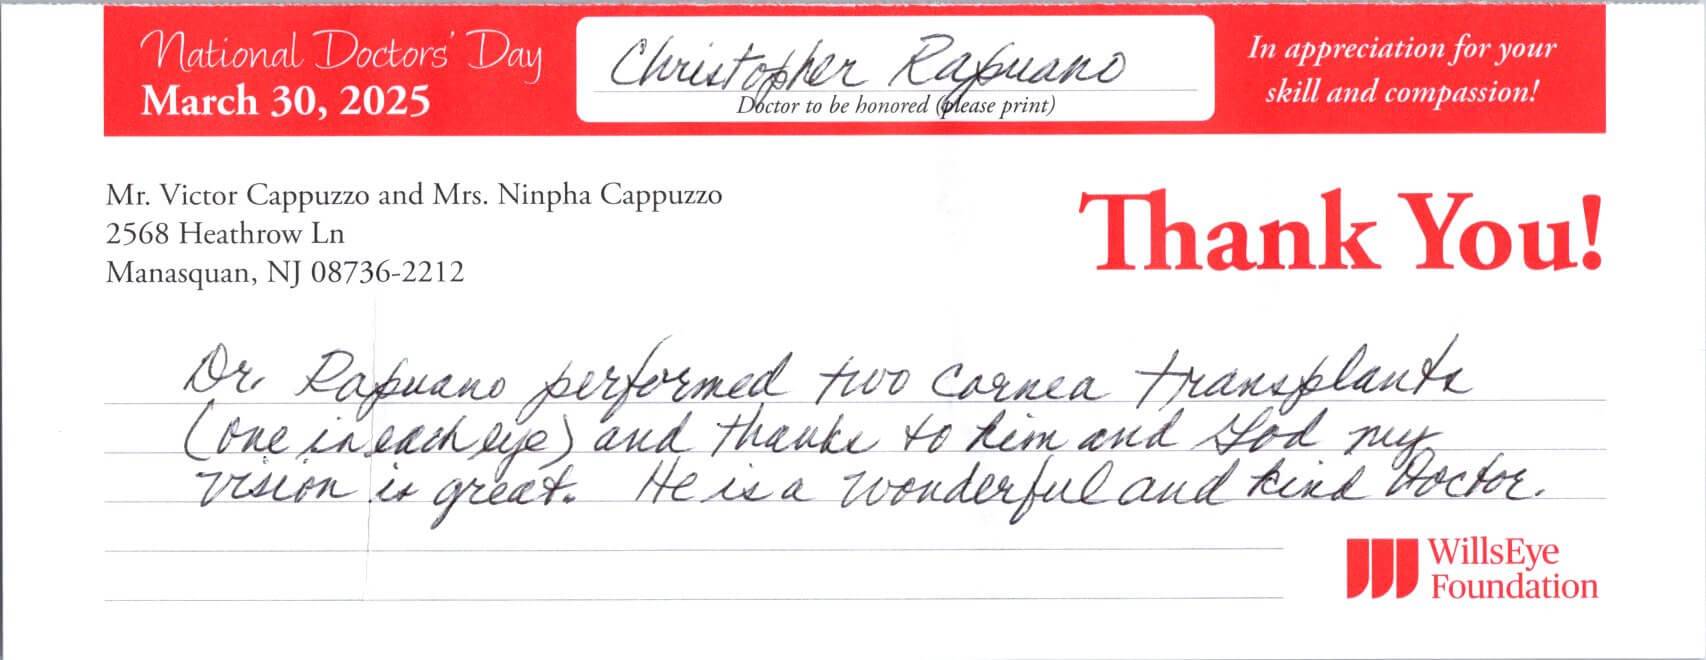 National Doctors' Day
March 30, 2025
Christopher Rapuano
Doctor to be honored (please print)
In appreciation for your
skill and compassion!
Mr. Victor Cappuzzo and Mrs. Ninpha Cappuzzo
2568 Heathrow Ln
Manasquan, NJ 08736-2212
Thank You!
Dr. Rapuano performed two cornea transplants
(one in each eye) and thanks to him and God my
vision is great. He is a wonderful and kind Doctor.
WillsEye
Foundation